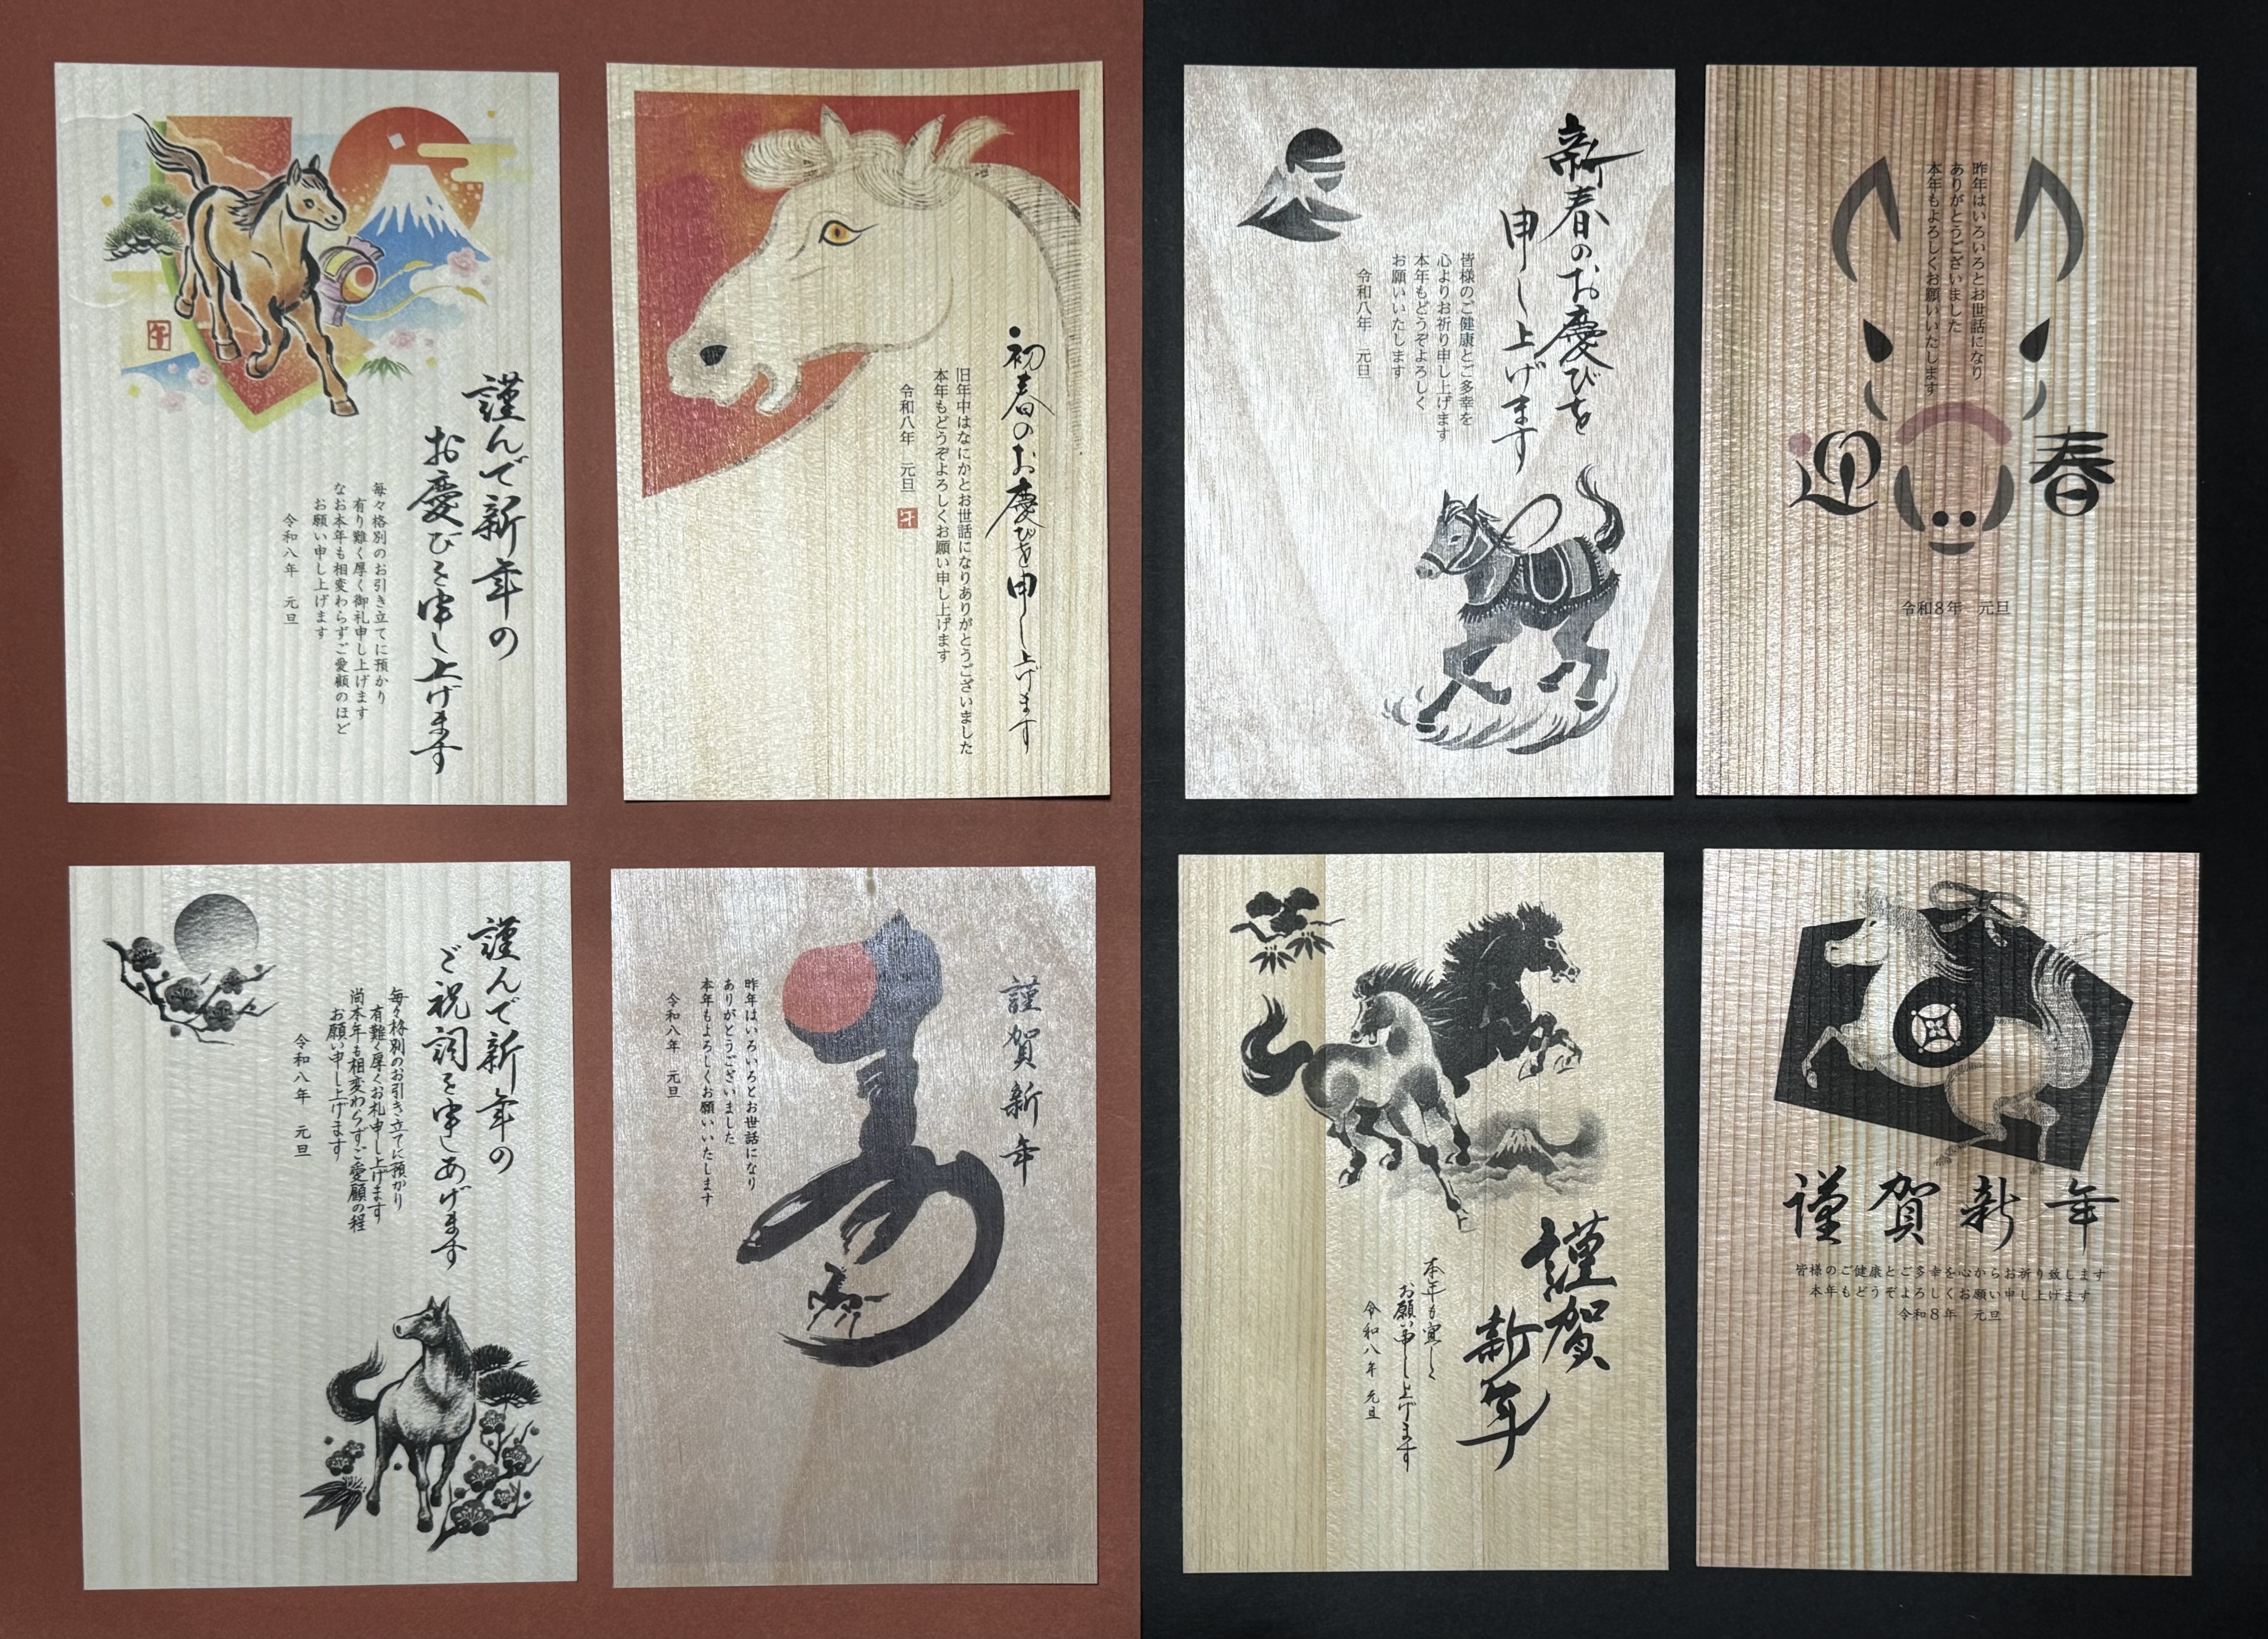 謹んで新年の
お慶びを申し上げます
毎々格別のお引き立てに預かり
有り難く厚く御礼申し上げます
なお本年も相変わらずご愛顧のほど
お願い申し上げます
令和八年 元旦
午
初春のお慶びを申し上げます
旧年中はなにかとお世話になりありがとうございました
本年もどうぞよろしくお願い申し上げます
令和八年 元旦
午
新春のお慶びを
申し上げます
皆様のご健康とご多幸を
心よりお祈り申し上げます
本年もどうぞよろしく
お願いいたします
令和八年 元旦
昨年はいろいろとお世話になり
ありがとうございました
本年もよろしくお願いいたします
迎春
令和8年 元旦
謹んで新年の
ご祝詞を申しあげます
毎々格別のお引き立てに預かり
有難く厚くお礼申し上げます
尚本年も相変わらずご愛顧の程
お願い申し上げます
令和八年 元旦
謹賀新年
昨年はいろいろとお世話になり
ありがとうございました
本年もよろしくお願いいたします
令和八年 元旦
謹賀
新年
本年も宜しく
お願い申し上げます
令和八年 元旦
謹賀新年
皆様のご健康とご多幸を心からお祈り致します
本年もどうぞよろしくお願い申し上げます
令和8年 元旦